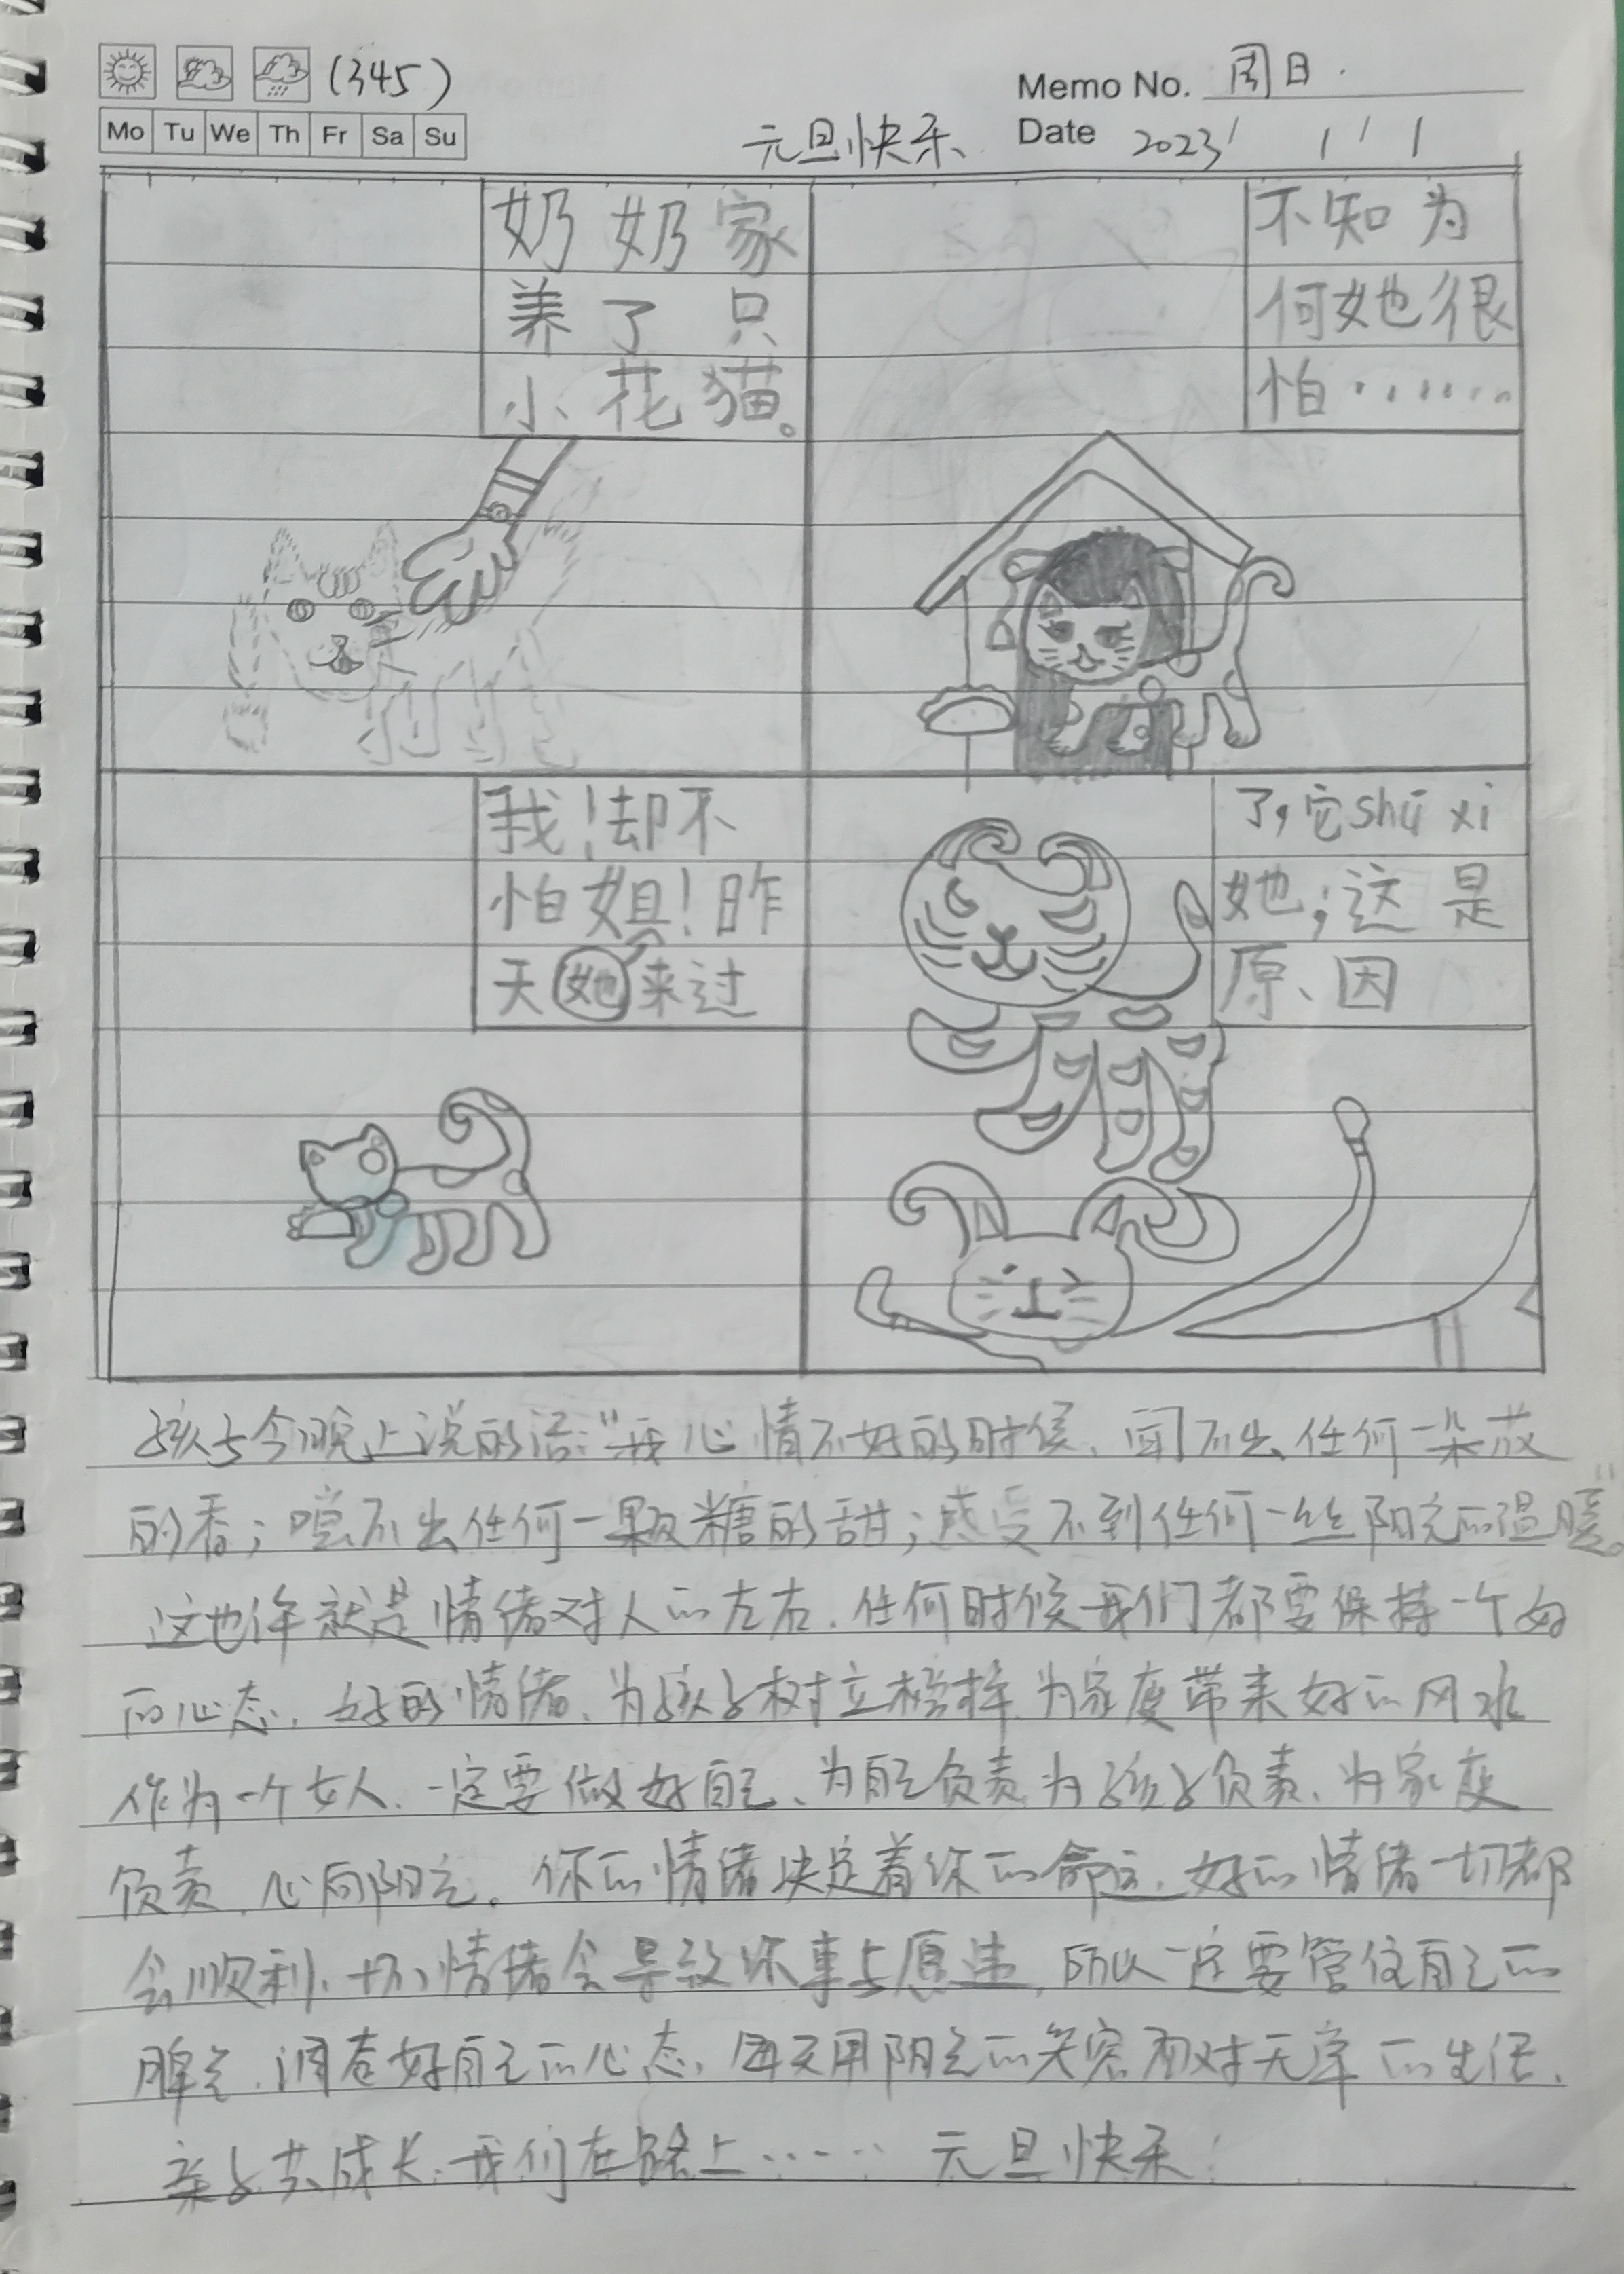 (345)
Memo No. 周日.
Mo Tu We Th Fr Sa Su
元旦快乐
Date 2023/ 1 / 1
奶奶家
养了只
小花猫。
不知为
何她很
怕.......
我!却不
怕姐!昨
天她来过
了,它shú xi
她;这是
原因
孩子今晚上说的话:"我心情不好的时候、闻不出任何一朵花
的香;尝不出任何一颗糖的甜;感受不到任何一丝阳光的温暖。"
这也许就是情绪对人的左右.任何时候我们都要保持一个好
的心态、好的情绪、为孩子树立榜样.为家庭带来好的风水
作为一个女人、一定要做好自己、为自己负责为孩子负责、为家庭
负责、心向阳光。你的情绪决定着你的命运、好的情绪一切都
会顺利、坏情绪会导致你事与愿违、所以一定要管住自己的
脾气.调着好自己的心态、每天用阳光的笑容面对 的生活.
亲子共成长、我们在路上...... 元旦快乐!